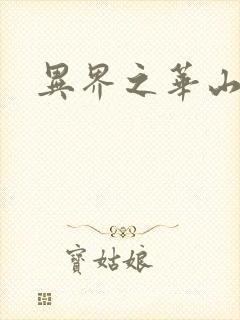 異界之華山
寶姑娘